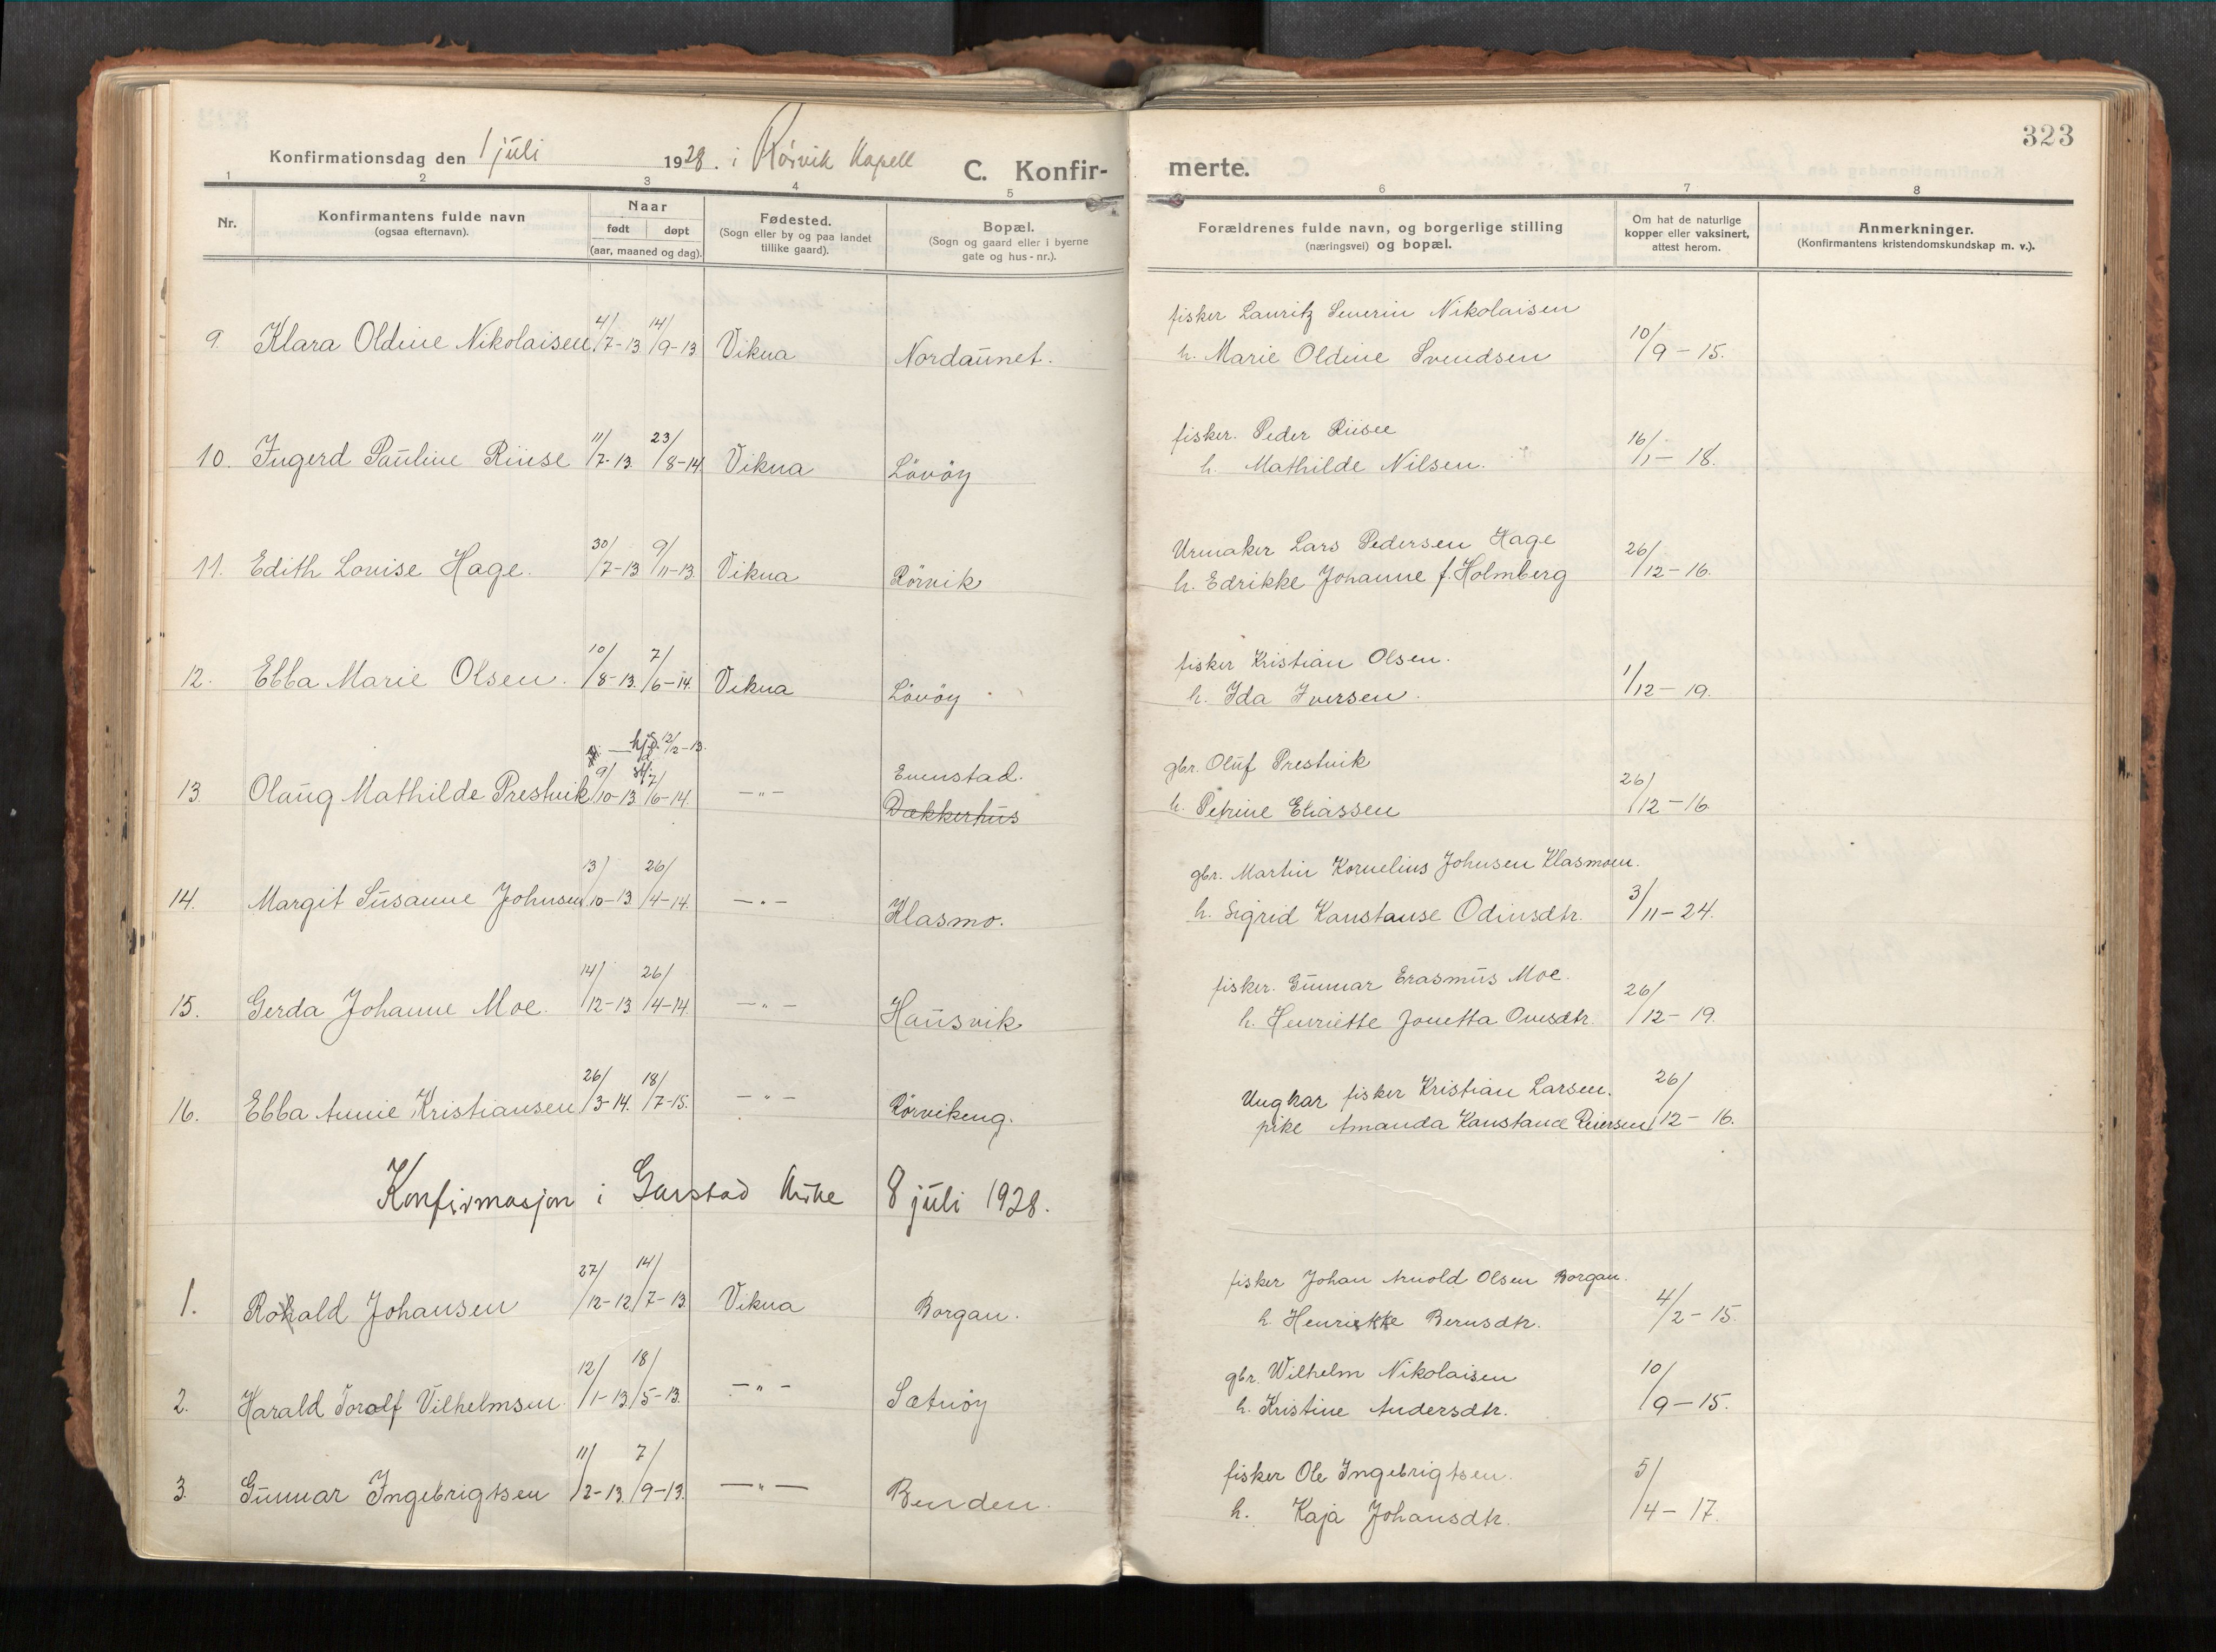 323
Konfirmationsdag den 1 juli 1928. i Rørvik Kapell
C. Konfirmerte.
1 2 3 4 5 6 7 8
Nr.
Konfirmantens fulde navn
(ogsaa efternavn).
Naar
født døpt
(aar, maaned og dag).
Fødested.
(Sogn eller by og paa landet
tillike gaard).
Bopæl.
(Sogn og gaard eller i byerne
gate og hus-nr.).
Forældrenes fulde navn, og borgerlige stilling
(næringsvei) og bopæl.
Om hat de naturlige
kopper eller vaksinert,
attest herom.
Anmerkninger.
(Konfirmantens kristendomskundskap m. v.).
9. Klara Oldine Nikolaisen 4/7-13 14/9-13 Vikna Nordaunet. fisker Lauritz Severin Nikolaisen
h. Marie Oldine Svendsen 10/9-15.
10. Ingerd Pauline Riise 11/7-13. 23/8-14 Vikna Lövöy fisker. Peder Riise
h. Mathilde Nilsen. 16/1-18.
11. Edith Lovise Hage. 30/7-13 9/11-13. Vikna Rörvik Urmaker Lars Pedersen Hage
h. Edrikke Johanne f. Holmberg 26/12-16.
12. Ebba Marie Olsen. 10/8-13. 7/6-14. Vikna Lövöy fisker Kristian Olsen.
h. Ida Iversen. 1/12-19.
hjd. 12/2-13.
13. Olaug Mathilde Prestvik 9/10-13 7/6-14. -"- Evenstad. gbr. Oluf Prestvik
Dækkerhus h. Petrine Eliassen 26/12-16.
14. Margit Susanne Johnsen 13/10-13 26/4-14. -"- Klasmo. gbr. Martin Kornelius Johnsen Klasmoen.
h. Sigrid Konstanse Odinsdtr. 3/11-24.
15. Gerda Johanne Moe. 14/12-13 26/4-14. -"- Hansvik fisker. Gunnar Erasmus Moe.
h. Henriette Jonetta Ovesdtr. 26/12-19.
16. Ebba Annie Kristiansen 26/3-14. 18/7-15. -"- Rörvikeng. Ungkar fisker Kristian Larsen.
pike Amanda Konstance Reiersen 26/12-16.
Konfirmasjon i Garstad kirke 8 juli 1928.
1. Rohald Johansen 27/12-12 14/7-13 Vikna Borgan. fisker Johan Arnold Olsen Borgan.
h. Henrikke Berusdtr. 4/2-15.
2. Harald Toralf Vilhelmsen. 12/1-13. 18/5-13. -"- Sætnöy gbr. Wilhelm Nikolaisen
h. Kristine Andersdtr. 10/9-15.
3. Gunnar Ingebrigtsen 11/2-13. 7/9-13. -"- Benden. fisker Ole Ingebrigtsen.
h. Kaja Johansdtr. 5/4-17.